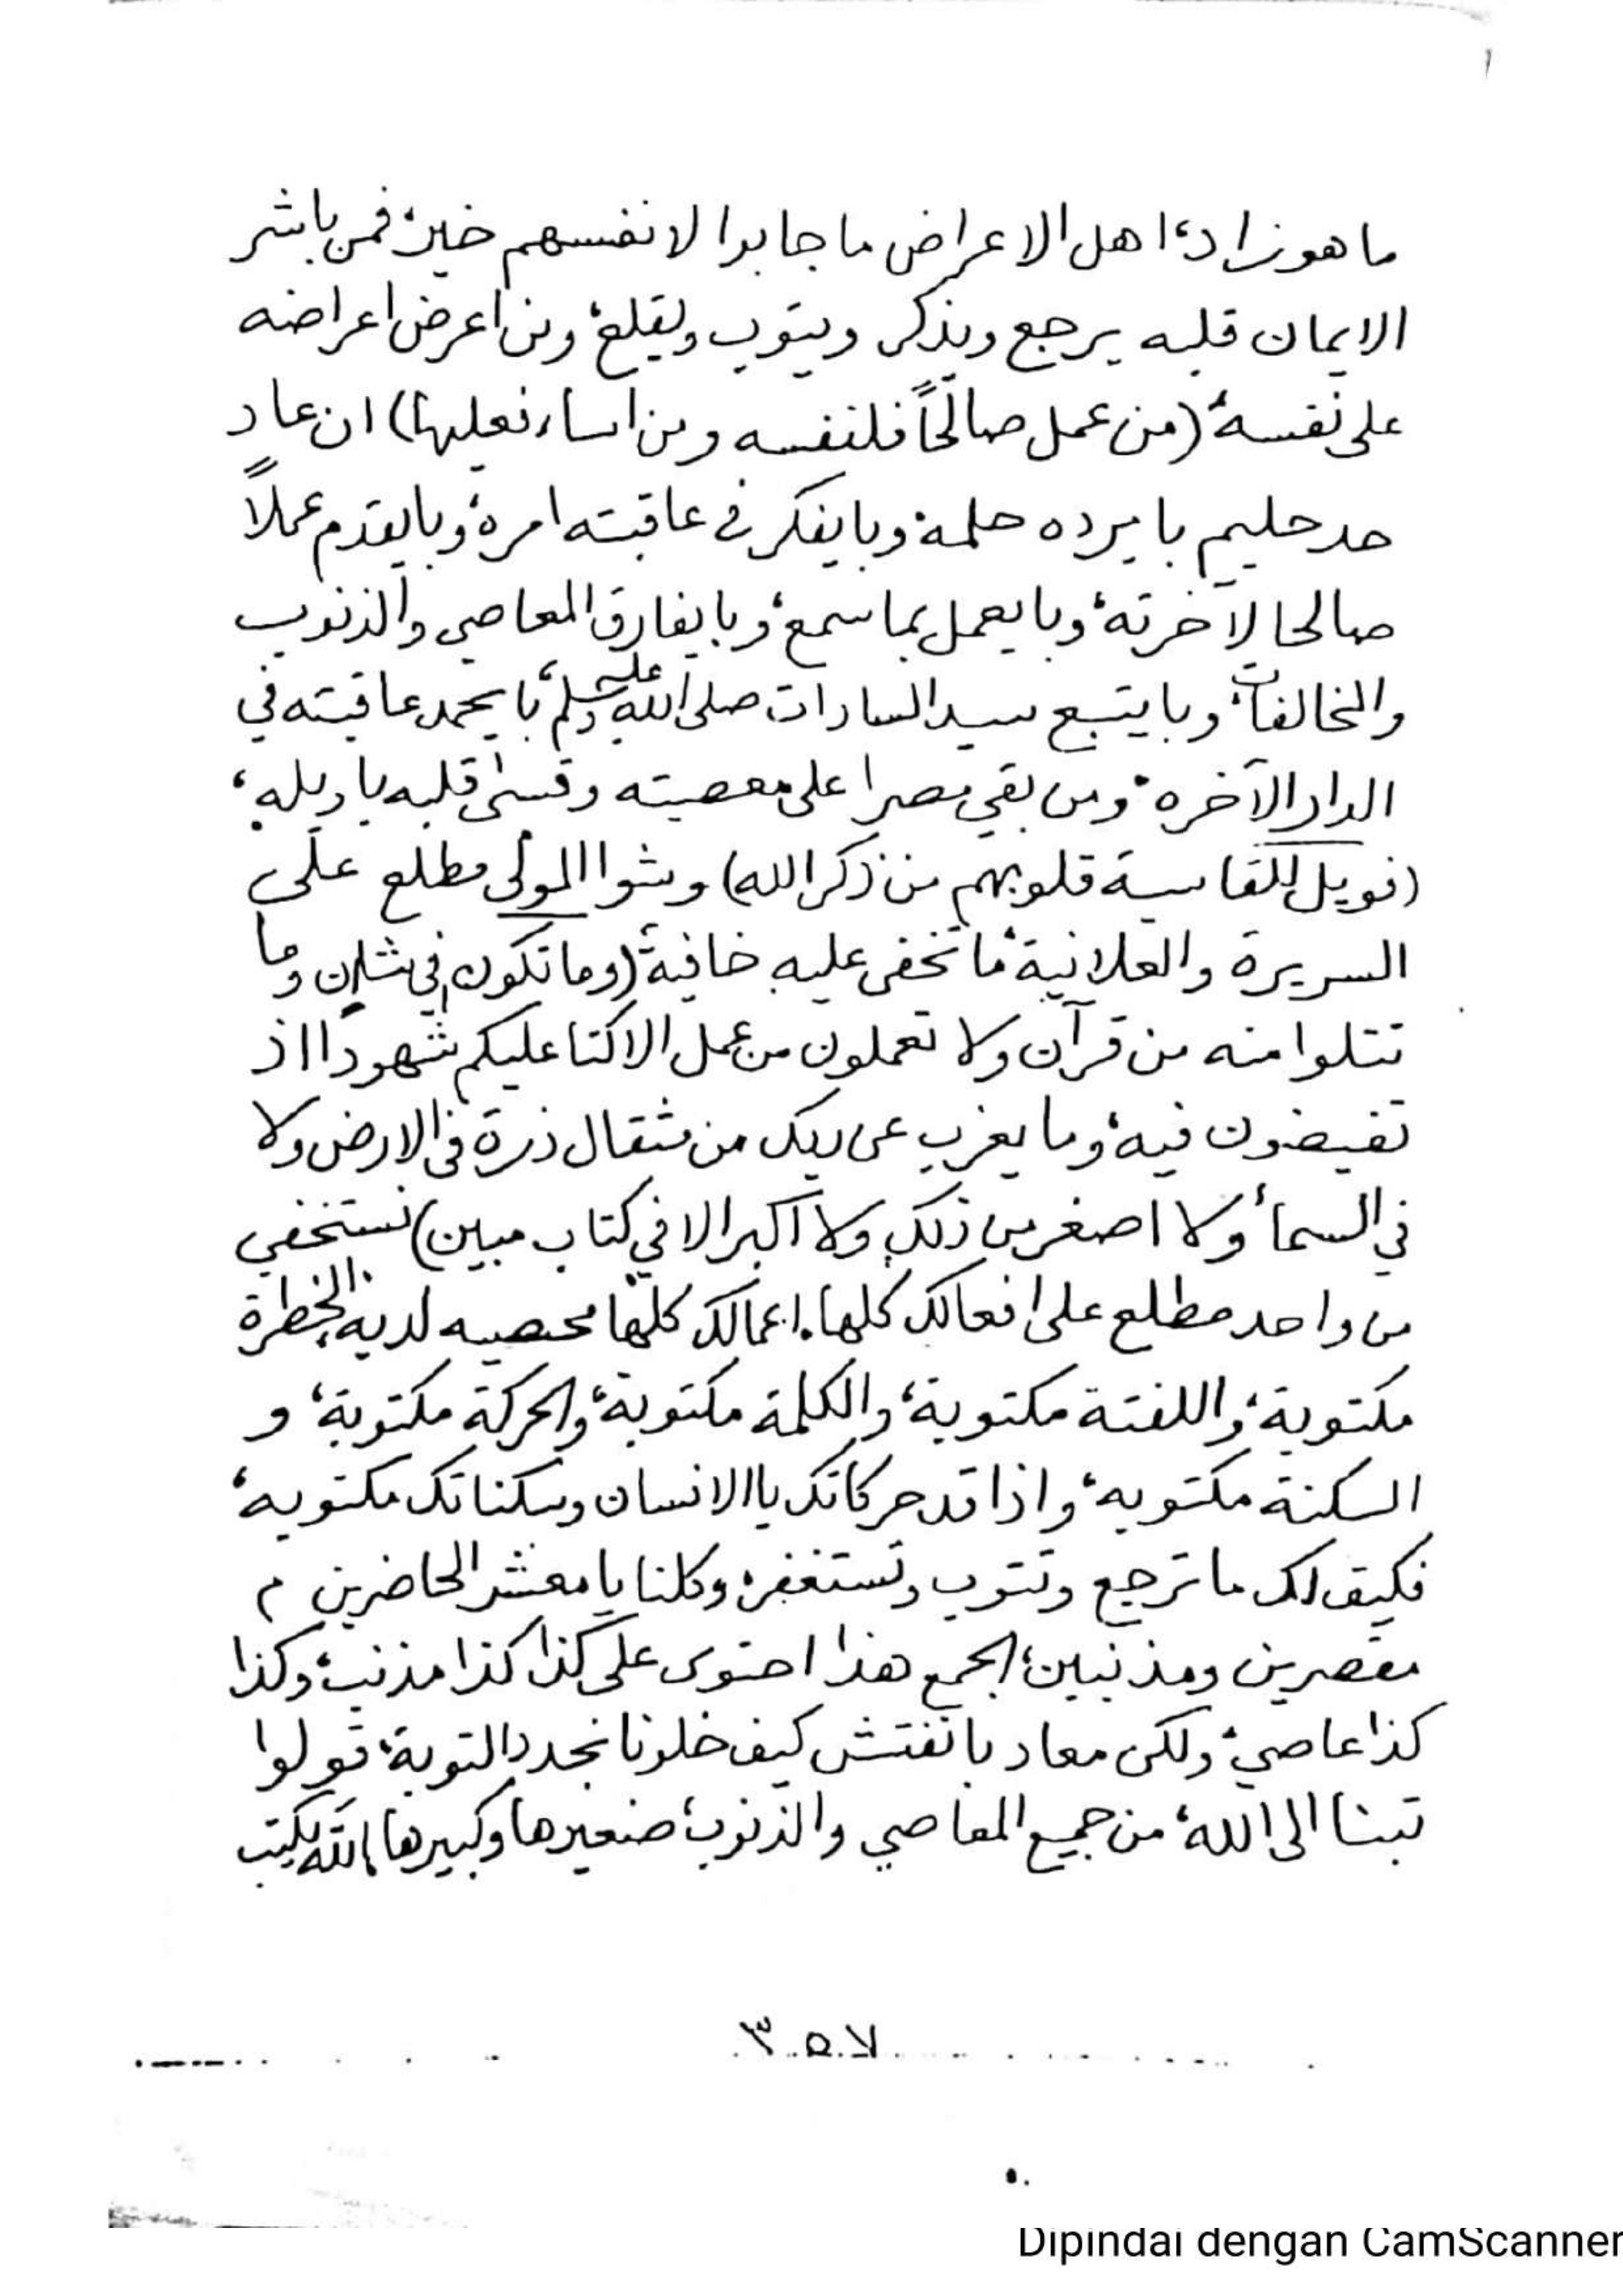 ما هو زاد، اهل الاعراض ما جابوا لانفسهم خير، فمن باشر
الايمان قلبه يرجع ويذكر ويتوب ويقلع، ومن اعرض اعراضه
على نفسه، (من عمل صالحاً فلنفسه ومن اساء فعليها) ان عاد
حد حليم با يرده حلمه، وبا يفكر في عاقبته امره، وبا يقدم عملاً
صالحا لآخرته، وبا يعمل بما سمع، وبا يفارق المعاصي والذنوب
والمخالفات، وبا يتبع سيد السادات صلى الله عليه وسلم، با يحمد عاقبته في
الدار الآخره، ومن بقي مصرا على معصيته وقسى قلبه يا ويله،
(فويل للقاسية قلوبهم من ذكر الله) وشوا المولى مطلع على
السريرة والعلانية، ما تخفى عليه خافية، (وما تكون في شان وما
تتلوا منه من قرآن ولا تعملون من عمل الا كنا عليكم شهودا اذ
تفيضون فيه، وما يعزب عن ربك من مثقال ذرة في الارض ولا
في السماء ولا اصغر من ذلك ولا اكبر الا في كتاب مبين) تستخفي
من واحد مطلع على افعالك كلها. اعمالك كلها محصيه لديه، الخطرة
مكتوبة، واللفتة مكتوبة، والكلمة مكتوبة، والحركة مكتوبة، و
السكنة مكتوبه، واذا قد حركاتك يا الانسان وسكناتك مكتوبه،
فكيف لك ما ترجع وتتوب وتستغفر، وكلنا يا معشر الحاضرين م
مقصرين ومذنبين، الجمع هذا احتوى على كذا كذا مذنب، وكذا
كذا عاصي، ولكن معاد با نفتش كيف خلونا نجدد التوبة، قولوا
تبنا الى الله، من جميع المعاصي والذنوب، صغيرها وكبيرها، الله يكتب
٣٥٧
Dipindai dengan CamScanner